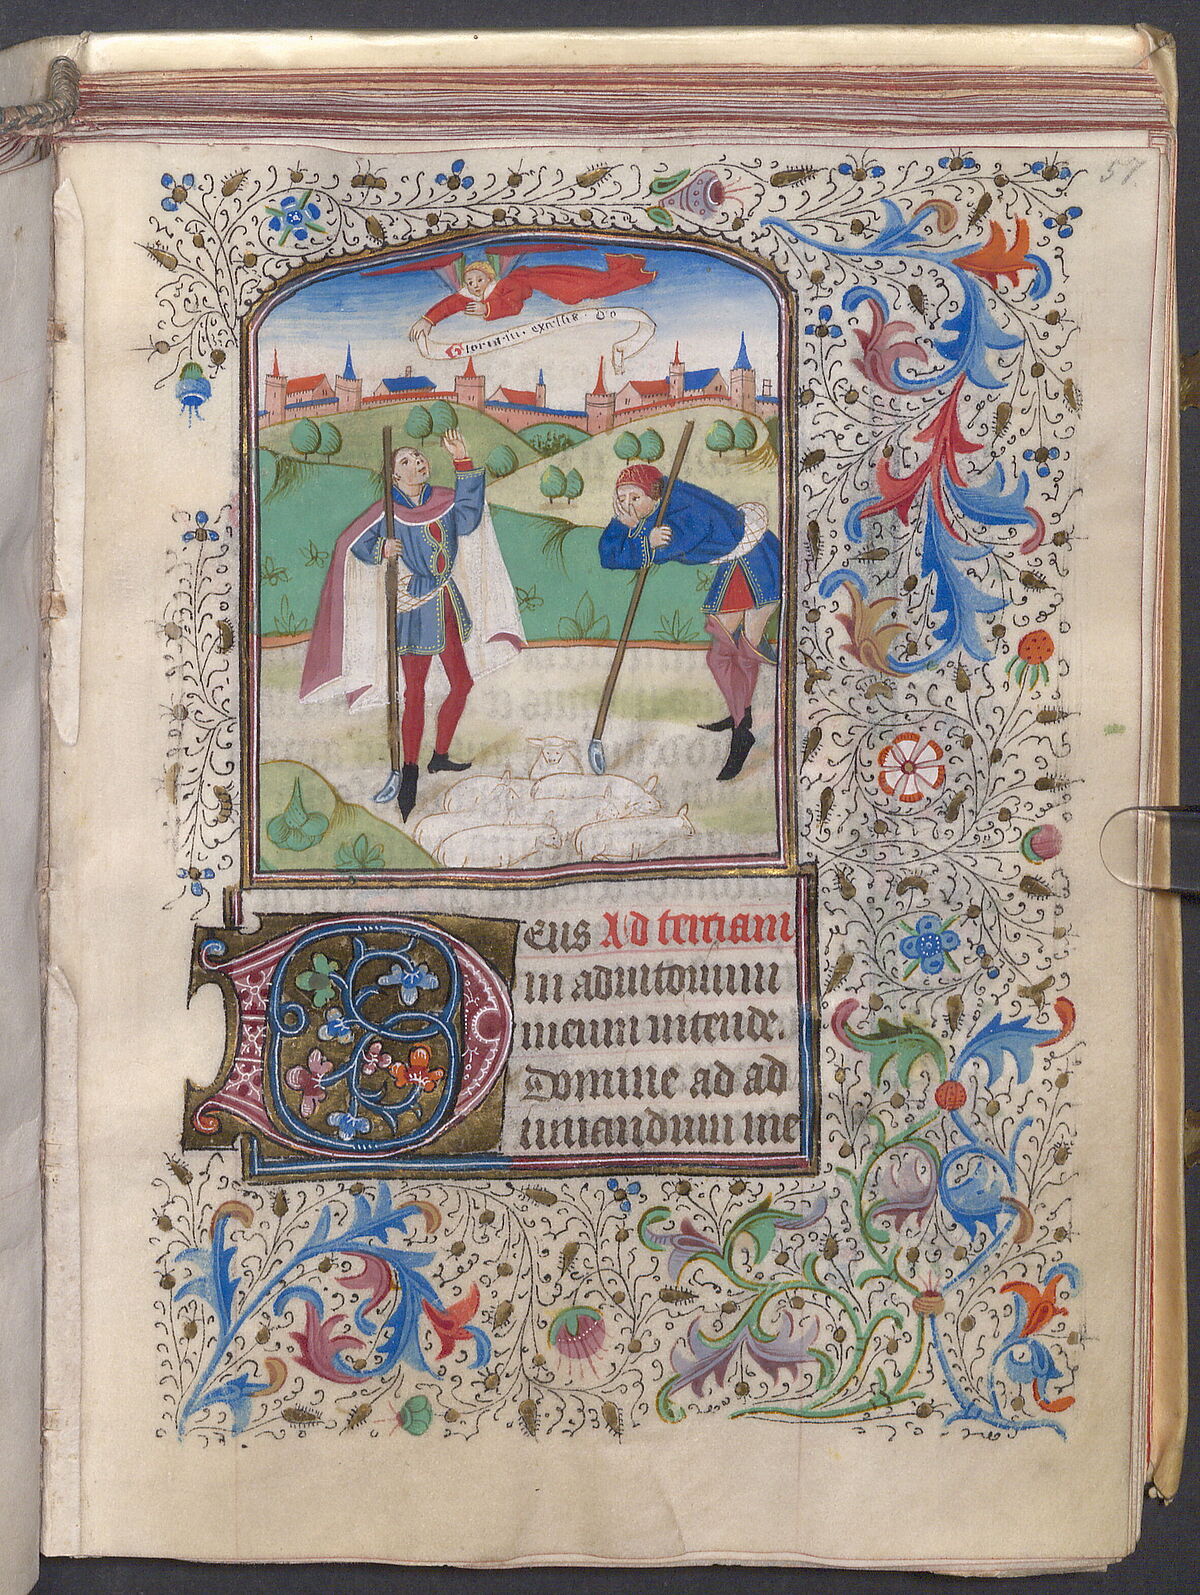 57
Gloria · in · excelsis · do
Deus Ad terciam
in adiutorium
meum intende.
Domine ad ad
iuuandum me